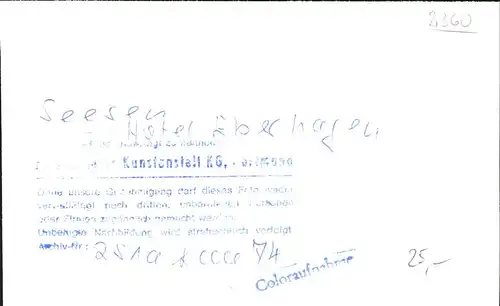 2360
Seesen
Hotel Überhagen
Kunstanstalt KG,
Ohne unsere Genehmigung darf dieses Foto weder
vervielfältigt noch dritten, unbefugten Personen
oder Firmen zugänglich gemacht werden.
Unbefugte Nachbildung wird strafrechtlich verfolgt
Archiv-Nr.: 74
Coloraufnahme
25,-